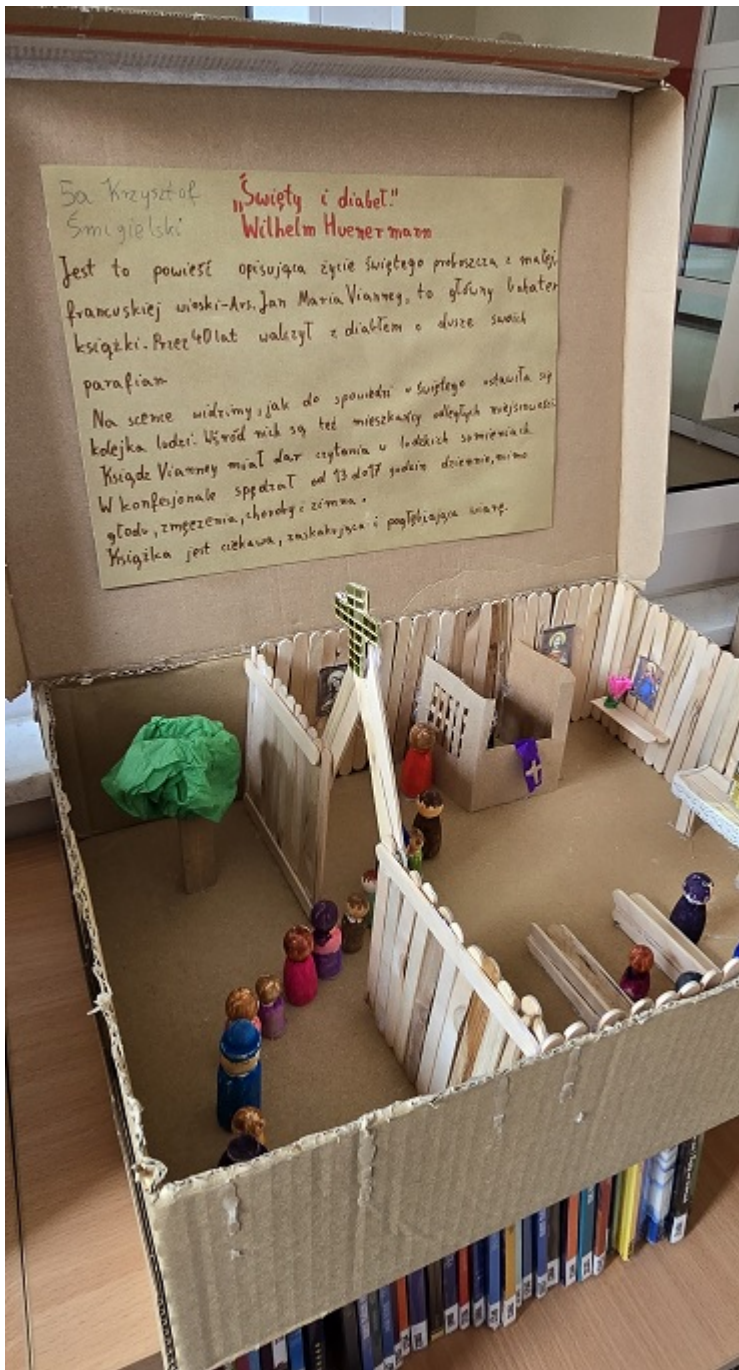 5a Krzysztof
Śmigielski
„Święty i diabeł."
Wilhelm Huenermann
Jest to powieść opisująca życie świętego proboszcza z małej
francuskiej wioski-Ars. Jan Maria Vianney, to główny bohater
książki. Przez 40 lat walczył z diabłem o dusze swoich
parafian
Na scence widzimy, jak do spowiedzi u świętego ustawiła się
kolejka ludzi. Wśród nich są też mieszkańcy odległych miejscowości.
Ksiądz Vianney miał dar czytania w ludzkich sumieniach.
W konfesjonale spędzał od 13 do 17 godzin dziennie, mimo
głodu, zmęczenia, choroby i zimna.
Książka jest ciekawa, zaskakująca i pogłębiająca wiarę.